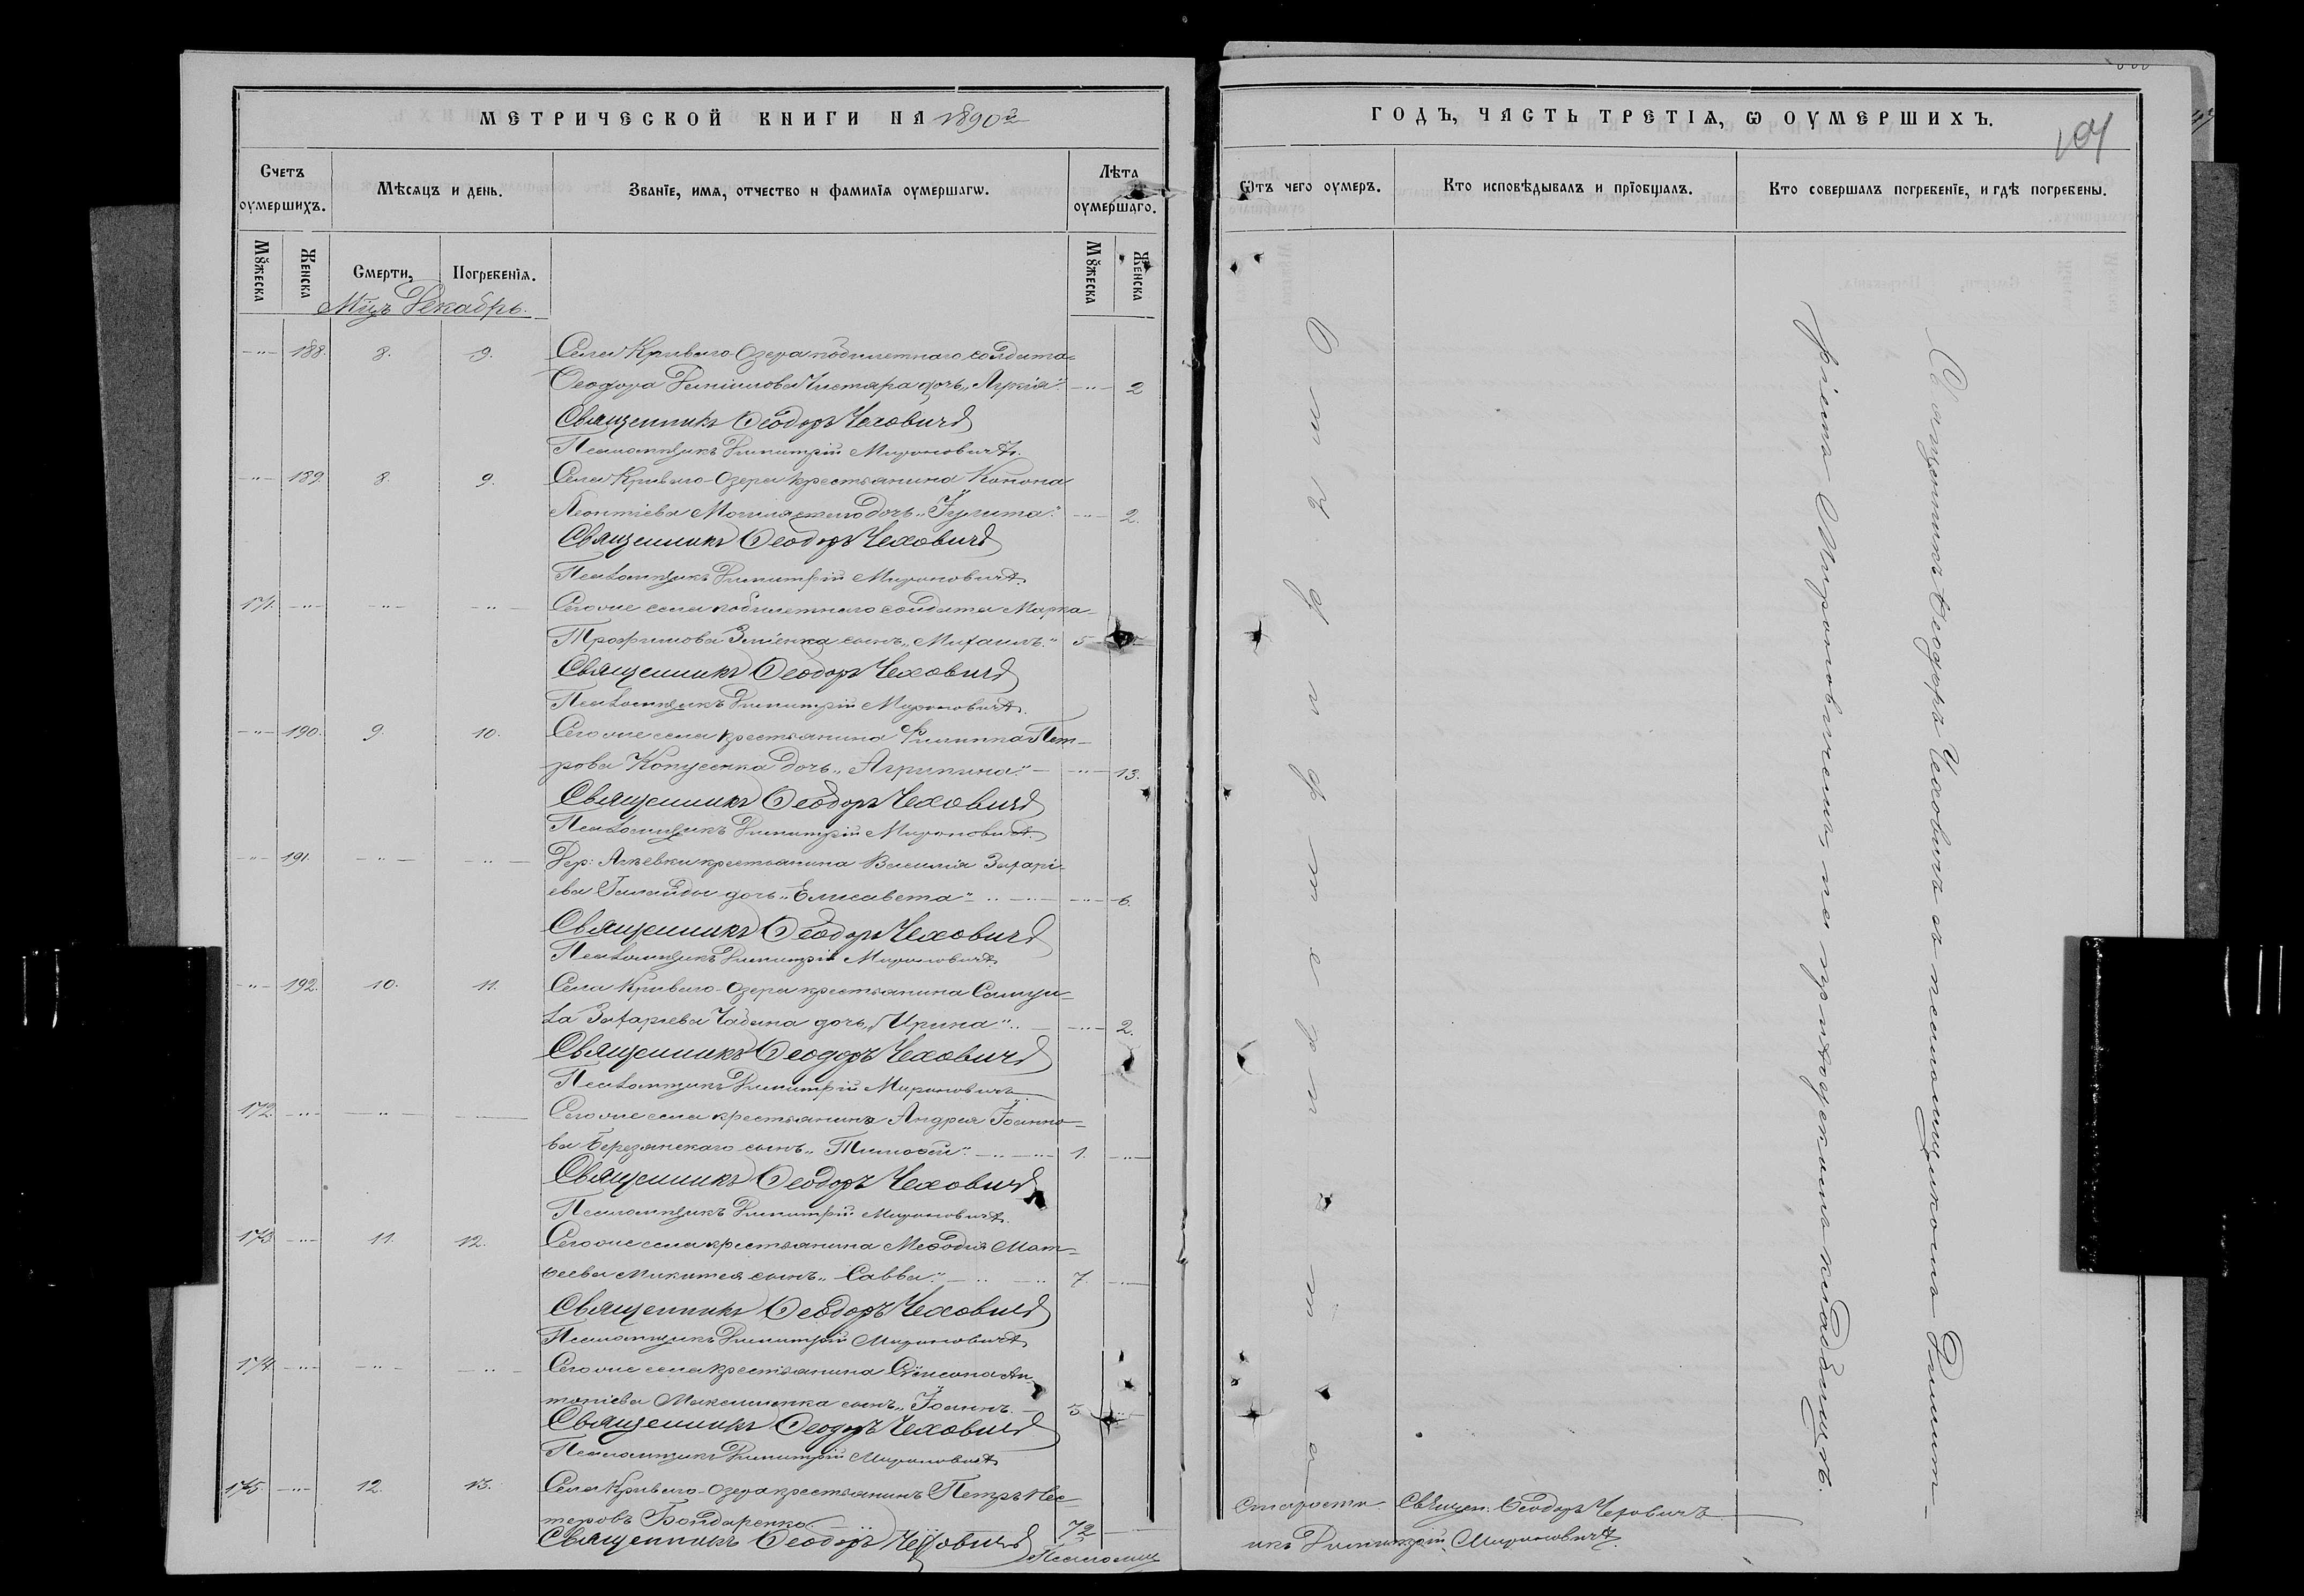 МЕТРИЧЕСКОЙ КНИГИ НА 1890й
Счетъ оумершихъ.
Мѣсяцъ и день.
Званїе, имя, отчество и фамилїя оумершагѡ.
Лѣта оумершаго.
Мꙋжеска
Женска
Смерти,
Погребенїя.
Мꙋжеска
Женска
Мцъ Декабрь.
188. 8. 9. Села Криваго-Озера побилетнаго солдата
Ѳеодора Данiилова дочь „Лукiя“. 2
Священникъ Ѳеодоръ Чеховичъ
Псаломщикъ Димитрiй Мироновичъ.
189. 8. 9. Села Криваго-Озера крестьянина Конона
Леонтiева дочь „Iулита“. 2.
Священникъ Ѳеодоръ Чеховичъ
Псаломщикъ Димитрiй Мироновичъ.
171. Тогоже села побилетнаго солдата Марка
Трофимова Змiенка сынъ „Михаилъ.“ 5
Священникъ Ѳеодоръ Чеховичъ
Псаломщикъ Димитрiй Мироновичъ.
190. 9. 10. Тогоже села крестьянина Филиппа Пет-
рова дочь „Агрипина“. 13.
Священникъ Ѳеодоръ Чеховичъ
Псаломщикъ Димитрiй Мироновичъ.
191. Дер: крестьянина Василiя Захарi-
ева Галайды дочь „Елисавета“ 6.
Священникъ Ѳеодоръ Чеховичъ
Псаломщикъ Димитрiй Мироновичъ.
192. 10. 11. Села Криваго-Озера крестьянина Самуи-
ла Захарiева Чабана дочь „Ирина“. 2.
Священникъ Ѳеодоръ Чеховичъ
Псаломщикъ Димитрiй Мироновичъ
172. Тогоже села крестьянина Андрея Iоанно-
ва Березянскаго сынъ „Тимоѳей“. 1.
Священникъ Ѳеодоръ Чеховичъ
Псаломщикъ Димитрiй Мироновичъ.
173 11. 12. Тогоже села крестьянина Меѳодiя Мат-
ѳеева сынъ „Савва“. 7.
Священникъ Ѳеодоръ Чеховичъ
Псаломщикъ Димитрiй Мироновичъ
174. Тогоже села крестьянина Сѵмеона Ан-
тонiева Максименка сынъ „Iоаннъ. 5
Священникъ Ѳеодоръ Чеховичъ
Псаломщикъ Димитрiй Мироновичъ
175. 12. 13. Села Криваго-Озера крестьянинъ Петръ Нес-
теровъ Бондаренко 72
Священникъ Ѳеодоръ Чеховичъ Псаломщ
ГОДЪ, ЧАСТЬ ТРЕТІЯ, Ѡ ОУМЕРШИХЪ.
Ѿтъ чего оумеръ.
Кто исповѣдывалъ и прїобщалъ.
Кто совершалъ погребенїе, и гдѣ погребены.
Отъ дифтерита
Священникъ Ѳеодоръ Чеховичъ съ псаломщикомъ Димит-
рiемъ Мироновичемъ, на приходскомъ кладбищѣ.
Старости. Священ: Ѳеодоръ Чеховичъ
икъ Димитрiй Мироновичъ.